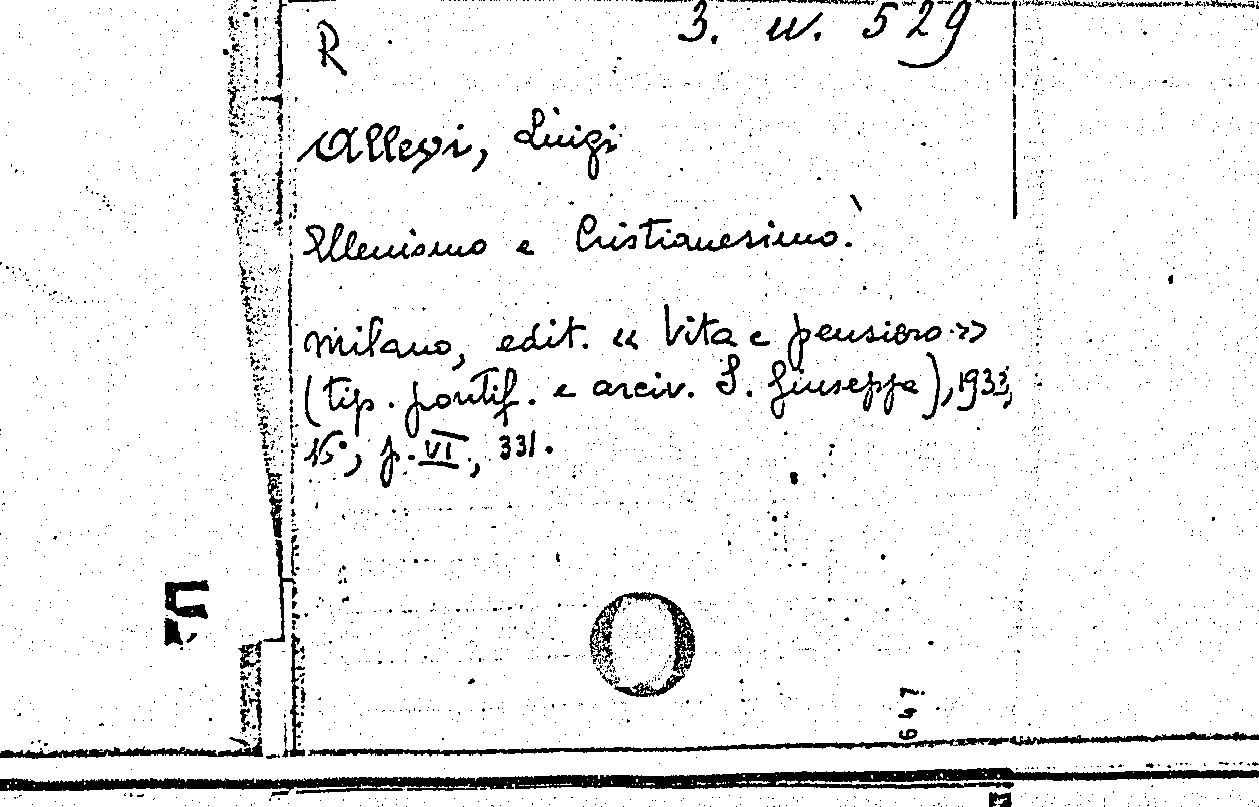 R
3. w. 529
Allevi, Luigi
Ellenismo e Cristianesimo.
Milano, edit. « Vita e pensiero »
(tip. pontif. e arciv. S. Giuseppe), 1933,
16°, p. VI, 331.
647